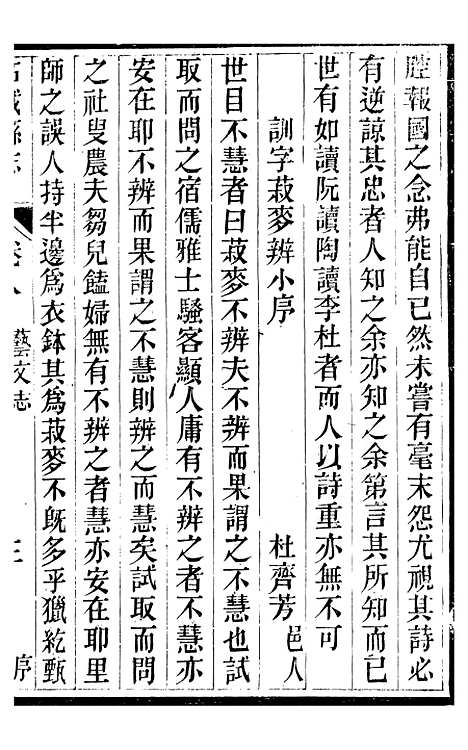 腔報國之念弗能自已然未嘗有毫末怨尤視其詩必
有逆諒其忠者人知之余亦知之余第言其所知而已
世有如讀阮讀陶讀李杜者而人以詩重亦無不可
訓字菽麥辨小序 杜齊芳邑人
世目不慧者曰菽麥不辨夫不辨而果謂之不慧也試
取而問之宿儒雅士騷客顯人庸有不辨之者不慧亦
安在耶不辨而果謂之不慧則辨之而慧矣試取而問
之社叟農夫芻兒饁婦無有不辨之者慧亦安在耶里
師之誤人持半邊爲衣鉢其爲菽麥不既多乎獵紇甄
縣志 卷八 藝文志 三 序